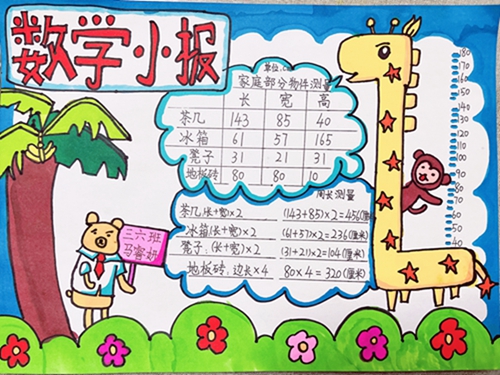 数学小报
单位:
家庭部分物件测量
长 宽 高
茶几 143 85 40
冰箱 61 57 165
凳子 31 21 31
地板砖 80 80 10
周长测量
茶几(长+宽)×2 (143+85)×2=456(厘米)
冰箱(长+宽)×2 (61+57)×2=236(厘米)
凳子:(长+宽)×2 (31+21)×2=104(厘米)
地板砖:边长×4 80×4=320(厘米)
三六班
马
180
170
160
150
140
130
120
110
100
90
80
70
60
50
40